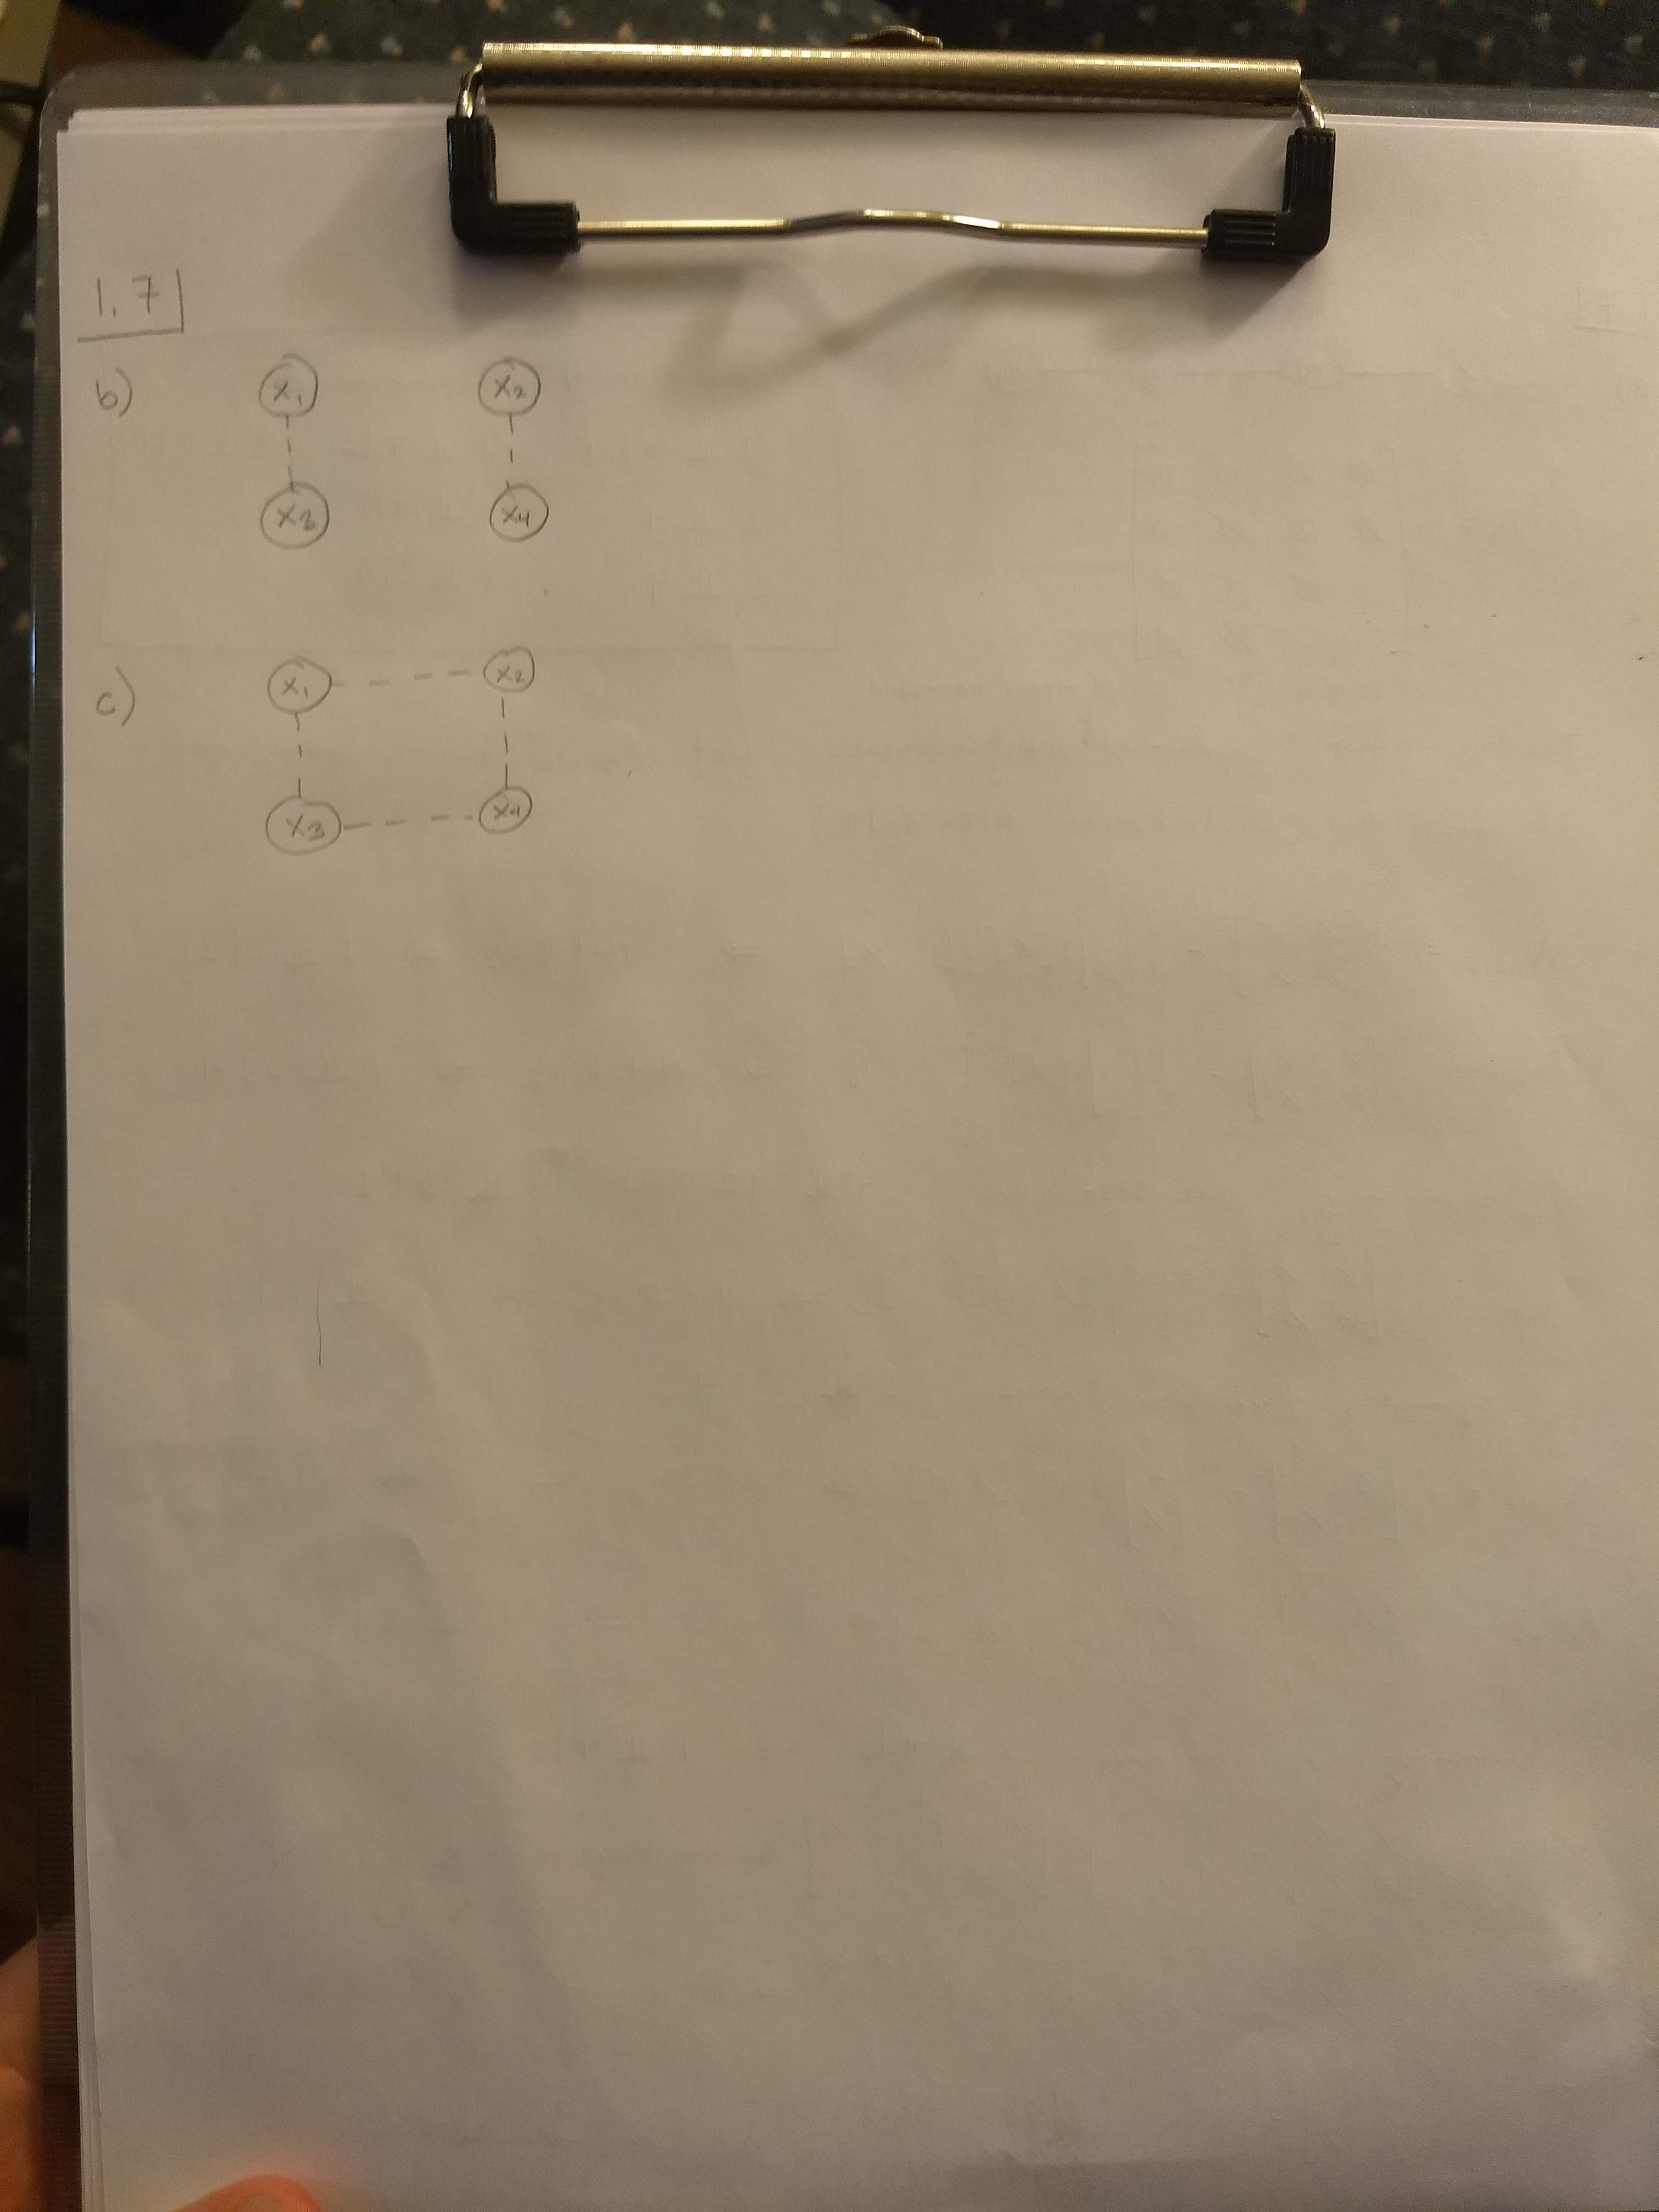 1.7
b) X₁ X₂
X₃ X₄
c) X₁ X₂
X₃ X₄